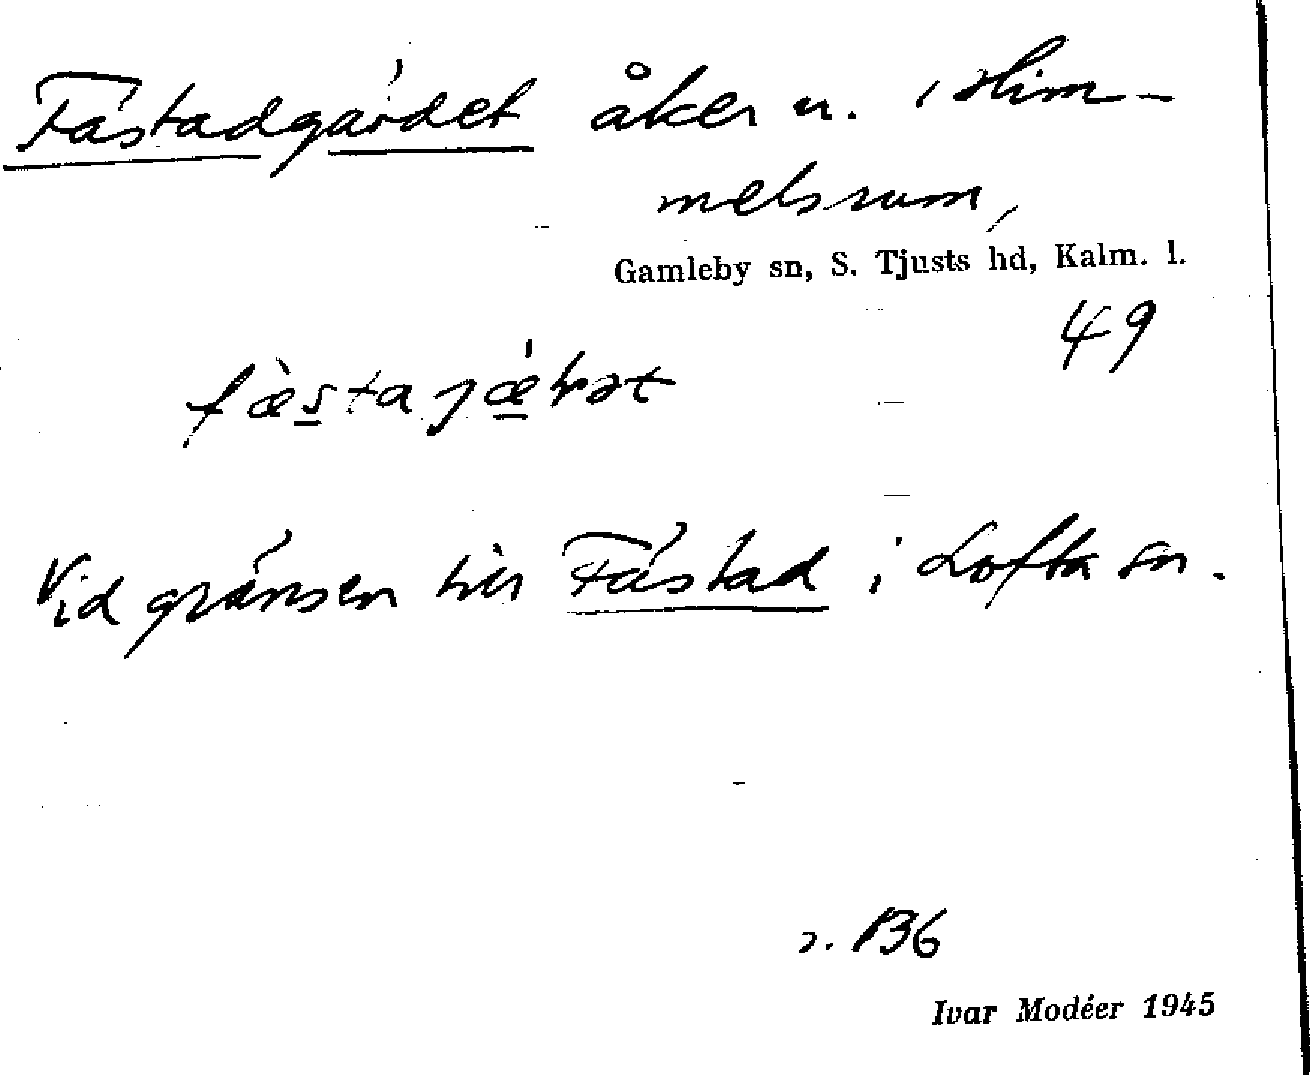 Fästadgärdet åker n. i Him-
melsrum,
Gamleby sn, S. Tjusts hd, Kalm. l.
49
fæ̀stajæ̀ɽət
Vid gränsen till Fästad i Lofta sn.
B6
Ivar Modéer 1945